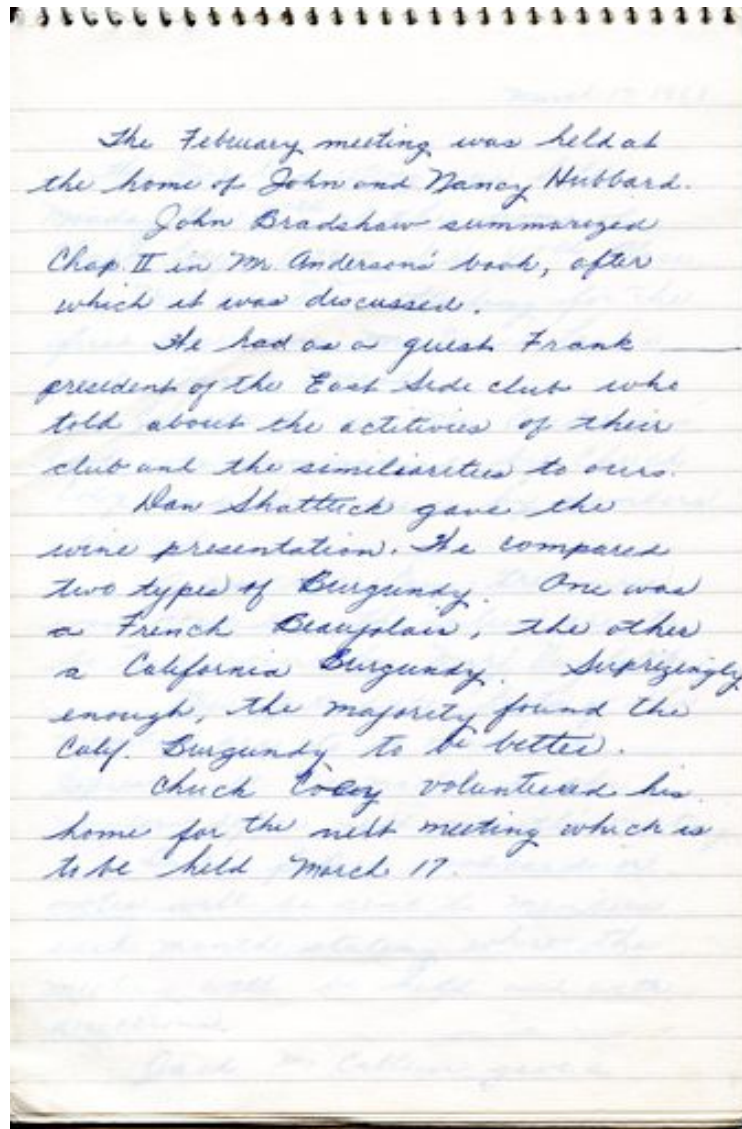 The February meeting was held at
the home of John and Nancy Hubbard.
John Bradshaw summarized
Chap. II in Mr. Anderson's book, after
which it was discussed.
We had as a guest Frank ———
president of the East Side club who
told about the actitivies of their
club and the similiarities to ours.
Dan Shattuck gave the
wine presentation. He compared
two types of Burgundy. One was
a French Beaujolais, the other
a California Burgundy. Suprizingly
enough, the majority found the
Calif. Burgundy to be better.
Chuck volunteered his
home for the next meeting which is
to be held March 17.